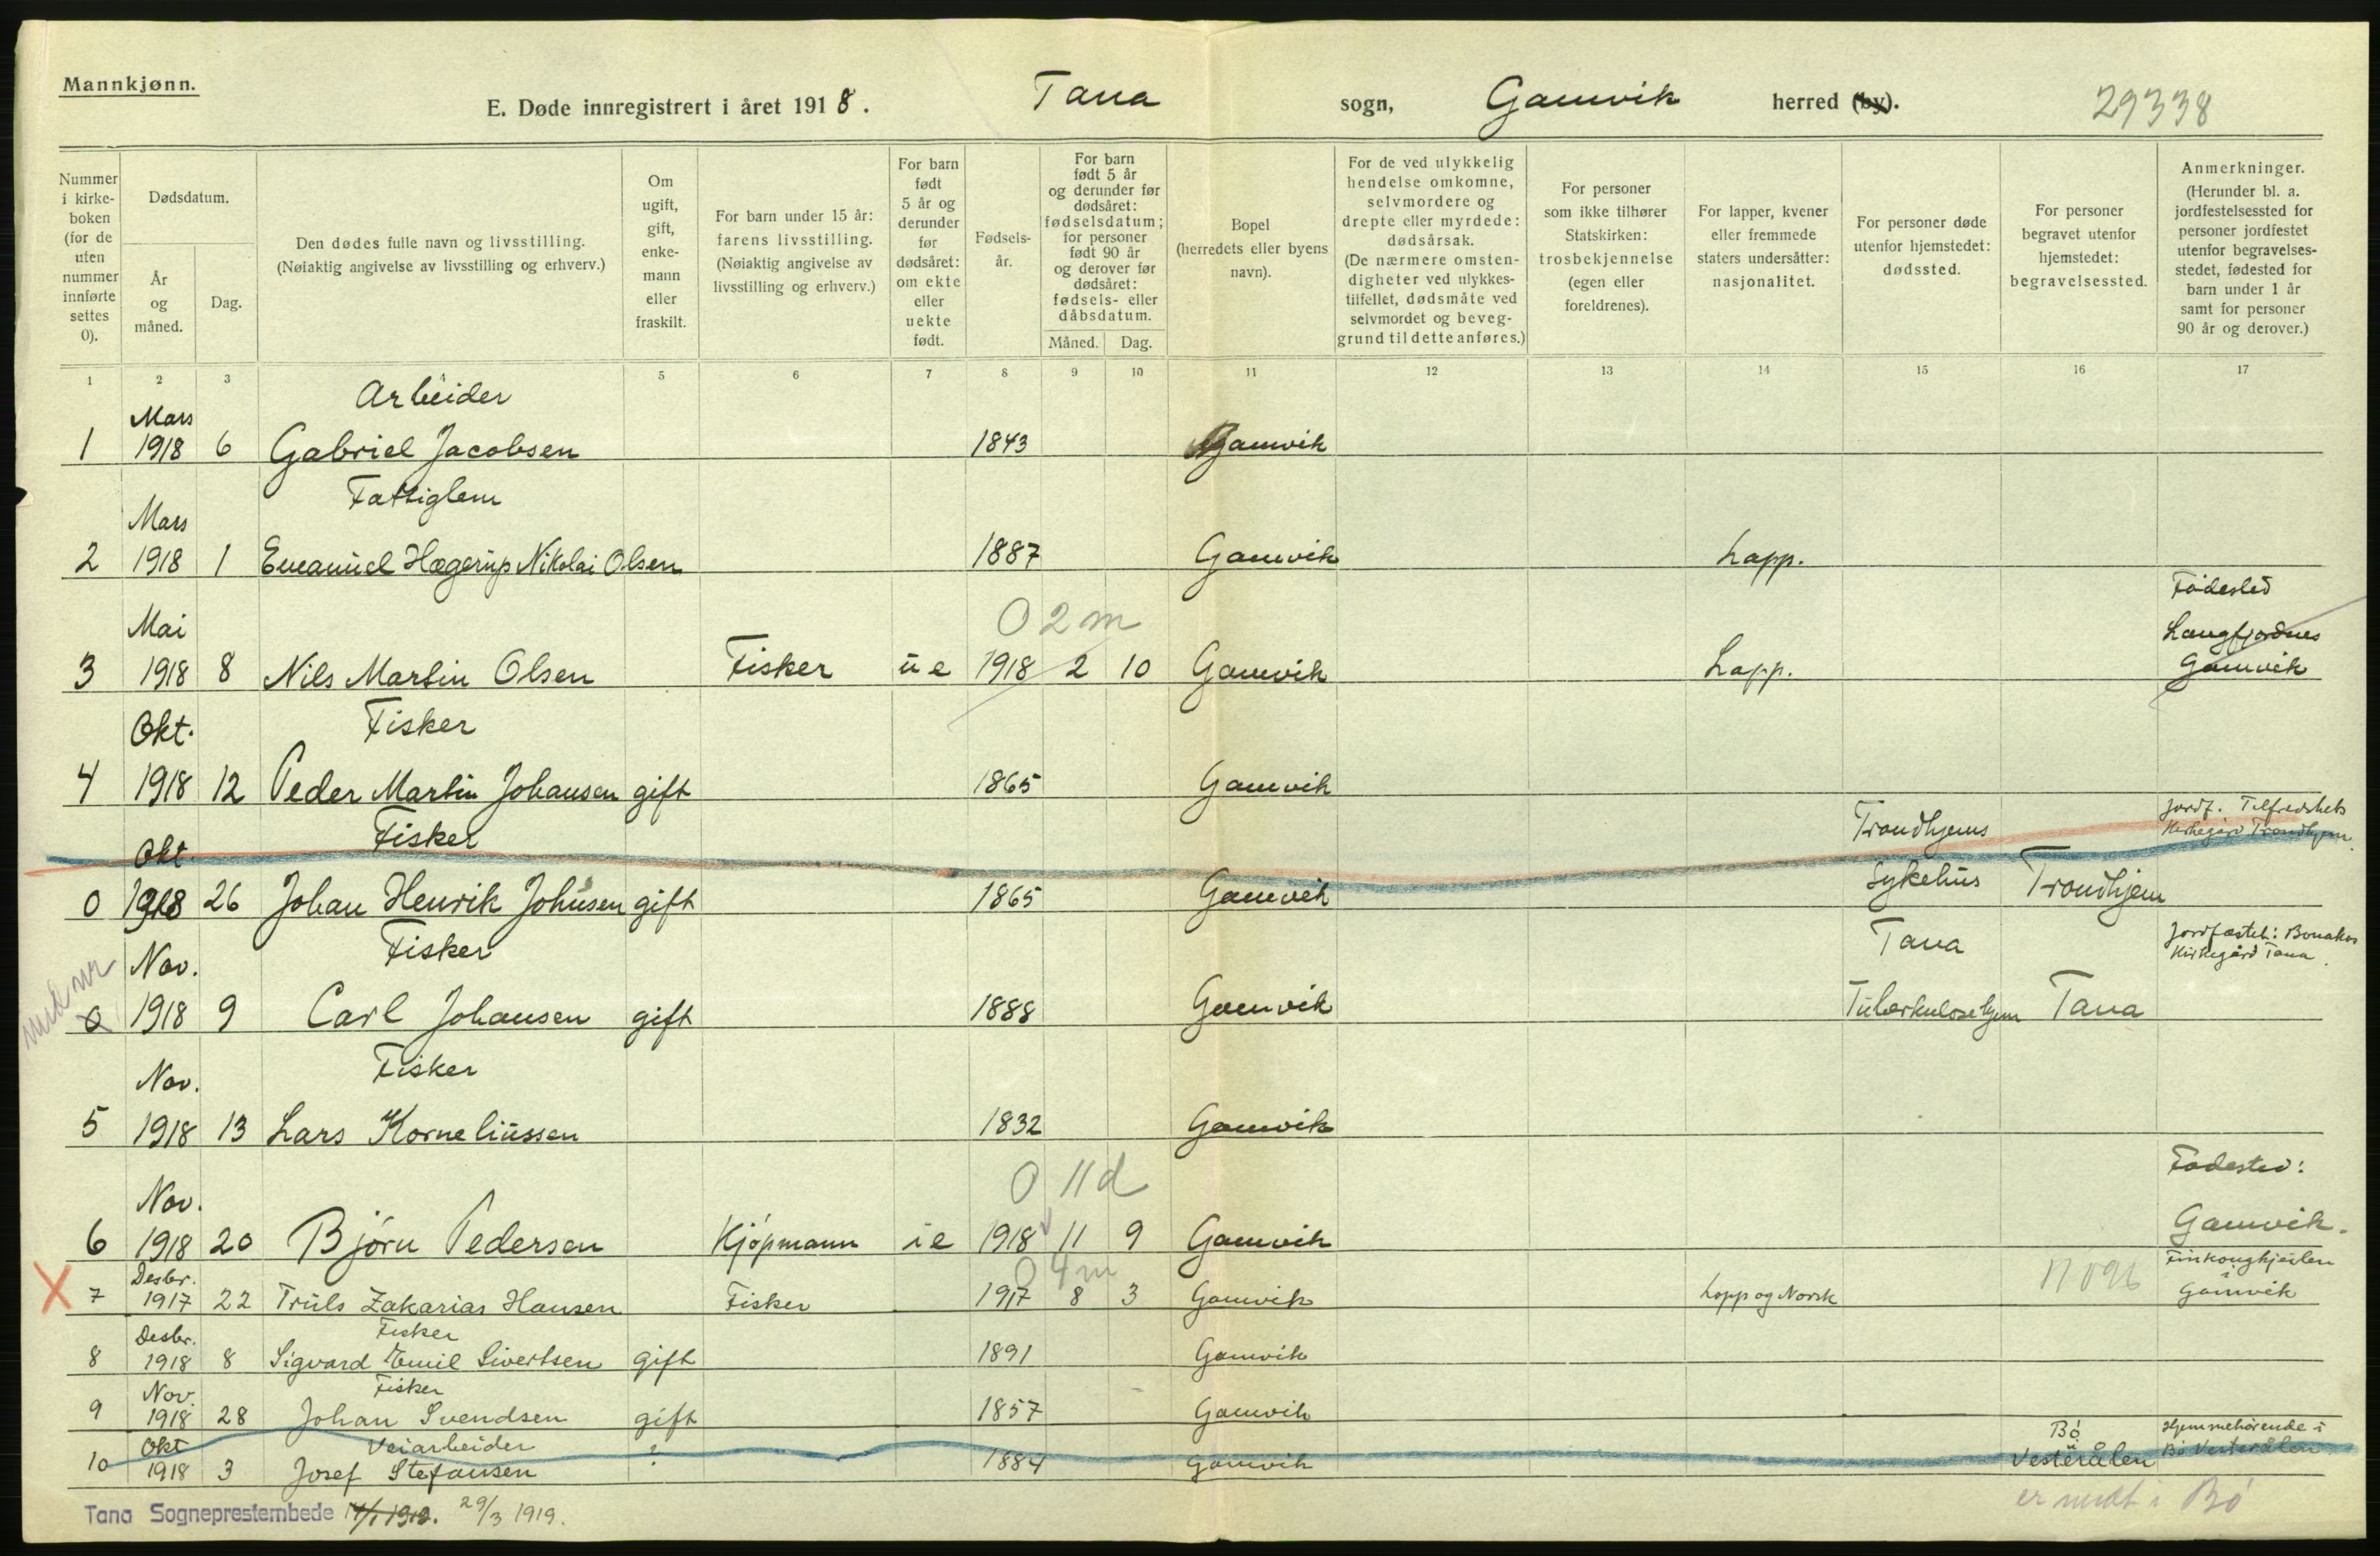 Mannkjønn.
E. Døde innregistrert i året 1918. Tana sogn, Gamvik herred (by). 29338
Nummer i kirkeboken (for de uten nummer innførte settes 0).
Dødsdatum.
År og måned.
Dag.
Den dødes fulle navn og livsstilling.
(Nøiaktig angivelse av livsstilling og erhverv.)
Om ugift, gift, enkemann eller fraskilt.
For barn under 15 år: farens livsstilling.
(Nøiaktig angivelse av livsstilling og erhverv.)
For barn født 5 år og derunder før dødsåret: om ekte eller uekte født.
Fødselsår.
For barn født 5 år og derunder før dødsåret: fødselsdatum; for personer født 90 år og derover før dødsåret: fødsels- eller dåbsdatum.
Måned. Dag.
Bopel (herredets eller byens navn).
For de ved ulykkelig hendelse omkomne, selvmordere og drepte eller myrdede: dødsårsak.
(De nærmere omstendigheter ved ulykkestilfellet, dødsmåte ved selvmordet og beveggrund til dette anføres.)
For personer som ikke tilhører Statskirken: trosbekjennelse (egen eller foreldrenes).
For lapper, kvener eller fremmede staters undersåtter: nasjonalitet.
For personer døde utenfor hjemstedet: dødssted.
For personer begravet utenfor hjemstedet: begravelsessted.
Anmerkninger.
(Herunder bl. a. jordfestelsessted for personer jordfestet utenfor begravelsesstedet, fødested for barn under 1 år samt for personer 90 år og derover.)
1 2 3 4 5 6 7 8 9 10 11 12 13 14 15 16 17
Mars Arbeider
1 1918 6 Gabriel Jacobsen 1843 Gamvik
Mars Fattiglem
2 1918 1 Emanuel Hagerup Nikolai Olsen 1887 Gamvik Lapp.
Mai 0 2 m Fødested Langfjordnes
3 1918 8 Nils Martin Olsen Fisker u e 1918 2 10 Gamvik Lapp. Gamvik
Okt. Fisker
4 1918 12 Peder Martin Johansen gift 1865 Gamvik
Okt. Fisker Trondhjems Jordf. Tilfredshets Kirkegård Trondhjem.
0 1918 26 Johan Henrik Johnsen gift 1865 Gamvik Sykehus Trondhjem
Nov. Fisker Tana Jordfæstet: Bonakas Kirkegård Tana.
med nr
0 1918 9 Carl Johansen gift 1888 Gamvik Tuberkulosehjem Tana
Nov. Fisker
5 1918 13 Lars Korneliussen 1832 Gamvik
Nov. 0 11 d Fødested:
6 1918 20 Bjørn Pedersen Kjøpmann i e 1918 11 9 Gamvik Gamvik.
Desbr. 0 4 m Finkongkjeilen i
X 7 1917 22 Truls Zakarias Hansen Fisker 1917 8 3 Gamvik Lapp og Norsk Gamvik
Desbr. Fisker
8 1918 8 Sigvard Emil Sivertsen gift 1891 Gamvik
Nov. Fisker
9 1918 28 Johan Svendsen gift 1857 Gamvik
Okt Veiarbeider ? Bø i Hjemmehørende i
10 1918 3 Josef Stefansen 1884 Gamvik Vesterålen Bø Vesterålen
er medt i Bø
Tana Sogneprestembede 29/3 1919.